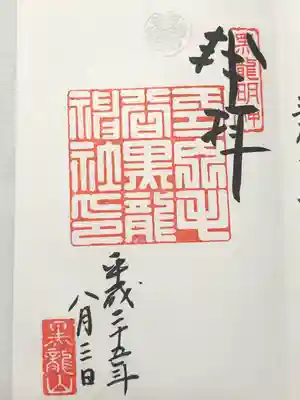 黒龍明神
奉拝
毛
谷黒龍
神社印
平成二十五年
八月三日
黒龍山